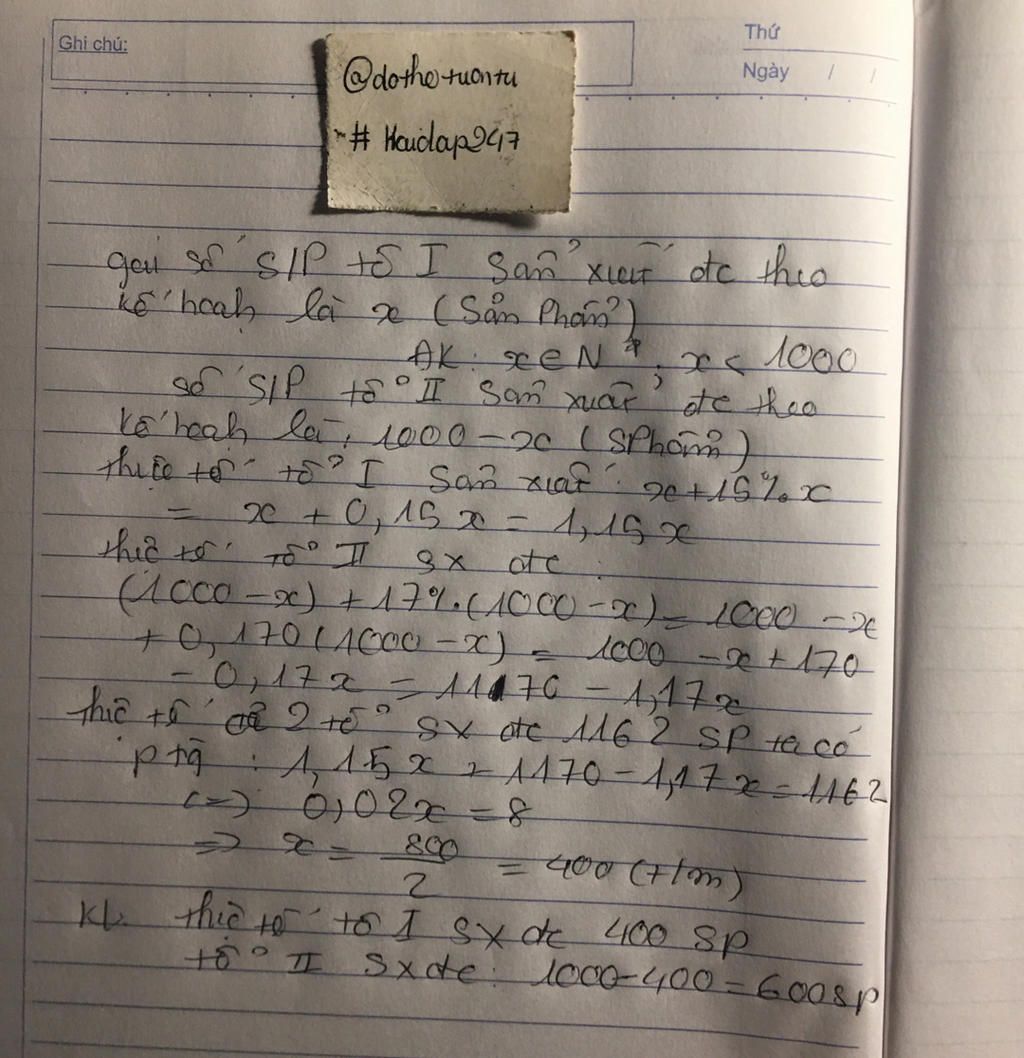 Ghi chú:
Thứ
Ngày / /
@dothetuantu
# Hoidap247
gọi số S/P tổ I sản xuất đc theo
kế hoạh là x (Sản Phẩm)
ĐK: x ∈ N*; x < 1000
số S/P tổ II sản xuất đc theo
kế hoạh là: 1000 - x (SPhẩm)
thực tế tổ I sản xuất: x + 15%.x
= x + 0,15x = 1,15x
thực tế tổ II sx đc:
(1000 - x) + 17%.(1000 - x) = 1000 - x
+ 0,170(1000 - x) = 1000 - x + 170
- 0,17x = 1170 - 1,17x
thực tế cả 2 tổ sx đc 1162 SP ta có
ptg: 1,15x + 1170 - 1,17x = 1162
<=> 0,02x = 8
=> x = 800/2 = 400 (t/m)
KL thực tế tổ I sx đc 400 sp
tổ II sxđc: 1000-400 = 600sp